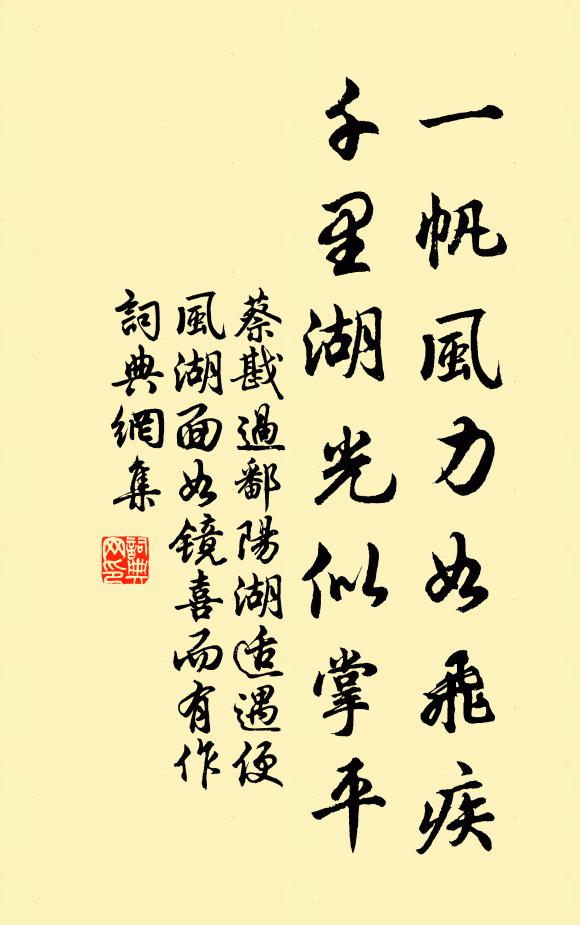 一帆風力如飛疾
千里湖光似掌平
蔡戡過鄱陽湖适遇便
風湖面如镜喜而有作
詞典網集
詞典
网印